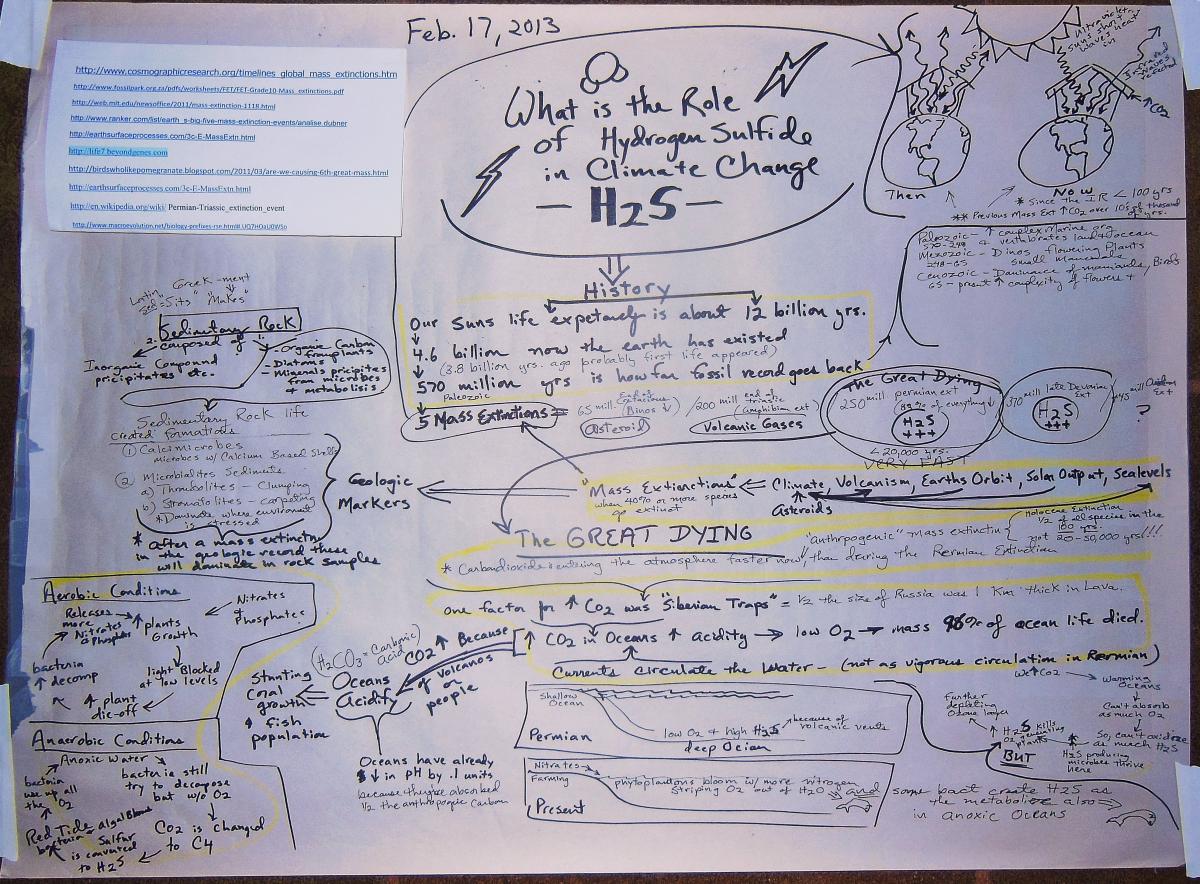 Feb. 17, 2013
http://www.cosmographicresearch.org/timelines_global_mass_extinctions.htm
http://www.fossilpark.org.za/pdfs/worksheets/FET/FET-Grade10-Mass_extinctions.pdf
http://web.mit.edu/newsoffice/2011/mass-extinction-1118.html
http://www.ranker.com/list/earth_s-big-five-mass-extinction-events/analise.dubner
http://earthsurfaceprocesses.com/3c-E-MassExtn.html
http://life7.beyondgenes.com
http://birdswholikepomegranate.blogspot.com/2011/03/are-we-causing-6th-great-mass.html
http://earthsurfaceprocesses.com/3c-E-MassExtn.html
http://en.wikipedia.org/wiki/ Permian-Triassic_extinction_event
What is the Role
of Hydrogen Sulfide
in Climate Change
— H2S —
Ultraviolet
Suns short
waves heat
in
Infrared
waves
reflected
↑CO2
Then
Now
* Since the I.R < 100 yrs
** Previous Mass Ext ↑CO2 over 10's of thousand
of yrs.
Paleozoic - ↑ complex Marine org
570-248 & vertebrates land & ocean
Mezozoic - Dinos, flowering Plants
248-65 Small mammals
Cenozoic - Dominance of mammals, Birds
65 - present ↑ complexity of flowers +
History
Our suns life expetancy is about 12 billion yrs.
4.6 billion now the earth has existed
(3.8 billion yrs. ago probably first life appeared)
570 million yrs is how far fossil record goes back
Paleozoic
5 Mass Extinctions =
65 mill. end of Cretacious (Dinos ↓)
Asteroid
/200 mill end of triassic
(Amphibian ext)
Volcanic Gases
The Great Dying
250 mill permian ext
H2S
+++
< 20,000 yrs.
VERY FAST
370 mill late Devonian
Ext
H2S
+++
?
Latin Greek -ment
sed = "Sits" "Makes"
Sedimentary Rock
composed of
2. 1.
Inorganic Compound
pricipitates etc.
- Organic Carbon
from plants
- Detrums
- Minerals pricipites
from microbes
+ metabolisis
Sedimentary Rock life
created formations
① Calcimicrobes
microbes w/ Calcium Based Shells
② Microbialites Sediments
a) Thrombolites - Clumping
b) Stromatolites - carpeting
* Dominate where environment
is stressed
* after a mass extinction
in the geologic record these
will dominate in rock samples
Geologic
Markers
Mass Extinctions
when 40% or more species
go extinct
⇐ Climate, Volcanism, Earths Orbit, Solar Output, Sealevels
Asteroids
The GREAT DYING
"anthropogenic" mass extinction
Holocene Extinction
1/2 of all species in the
100 yrs.
not 20-50,000 yrs!!!
* Carbondioxide is entering the atmosphere faster now, than during the Permian Extinction
one factor for ↑ CO2 was "Siberian Traps" = 1/2 the size of Russia was 1 Km thick in Lava.
↑ CO2 in Oceans ↑ Acidity → low O2 → mass 96% of ocean life died.
Currents Circulate the Water - (not as vigorous circulation in Permian)
Aerobic Conditions
Releases
more
Nitrates
& Phosphates
↑ plants
Growth
Nitrates
& Phosphates
bacteria
↑ decomp
light Blocked
at low levels
↑ plant
die-off
Anaerobic Conditions
Anoxic Water
bacteria
use up all
the O2
bacteria still
try to decompose
but w/o O2
Red Tide = algal Blooms
bacteria
Sulfur
is converted
to H2S
CO2 is changed
to C4
(H2CO3 = Carbonic
Acid)
CO2 ↑ Because
of volcanos
or
people
Oceans
Acidify
Stunting
Coral
growth
↓ fish
population
Oceans have already
↓ in pH by .1 units
because they've absorbed
1/2 the anthropogenic Carbon
Shallow
Ocean
low O2 & high H2S
because of
volcanic vents
Permian
deep Ocean
Nitrates
Farming
phytoplanktons bloom w/ more nitrogen
striping O2 out of H2O and
Present
We ↑ CO2 → Warming
Oceans
Can't absorb
as much O2
So, can't oxidize
as much H2S
* H2S producing
microbes thrive
here
↑ H2S kills
O2 generating
plants
Further
depleting
Ozone layer
BUT
some bact create H2S as
the metabolize also
in anoxic Oceans